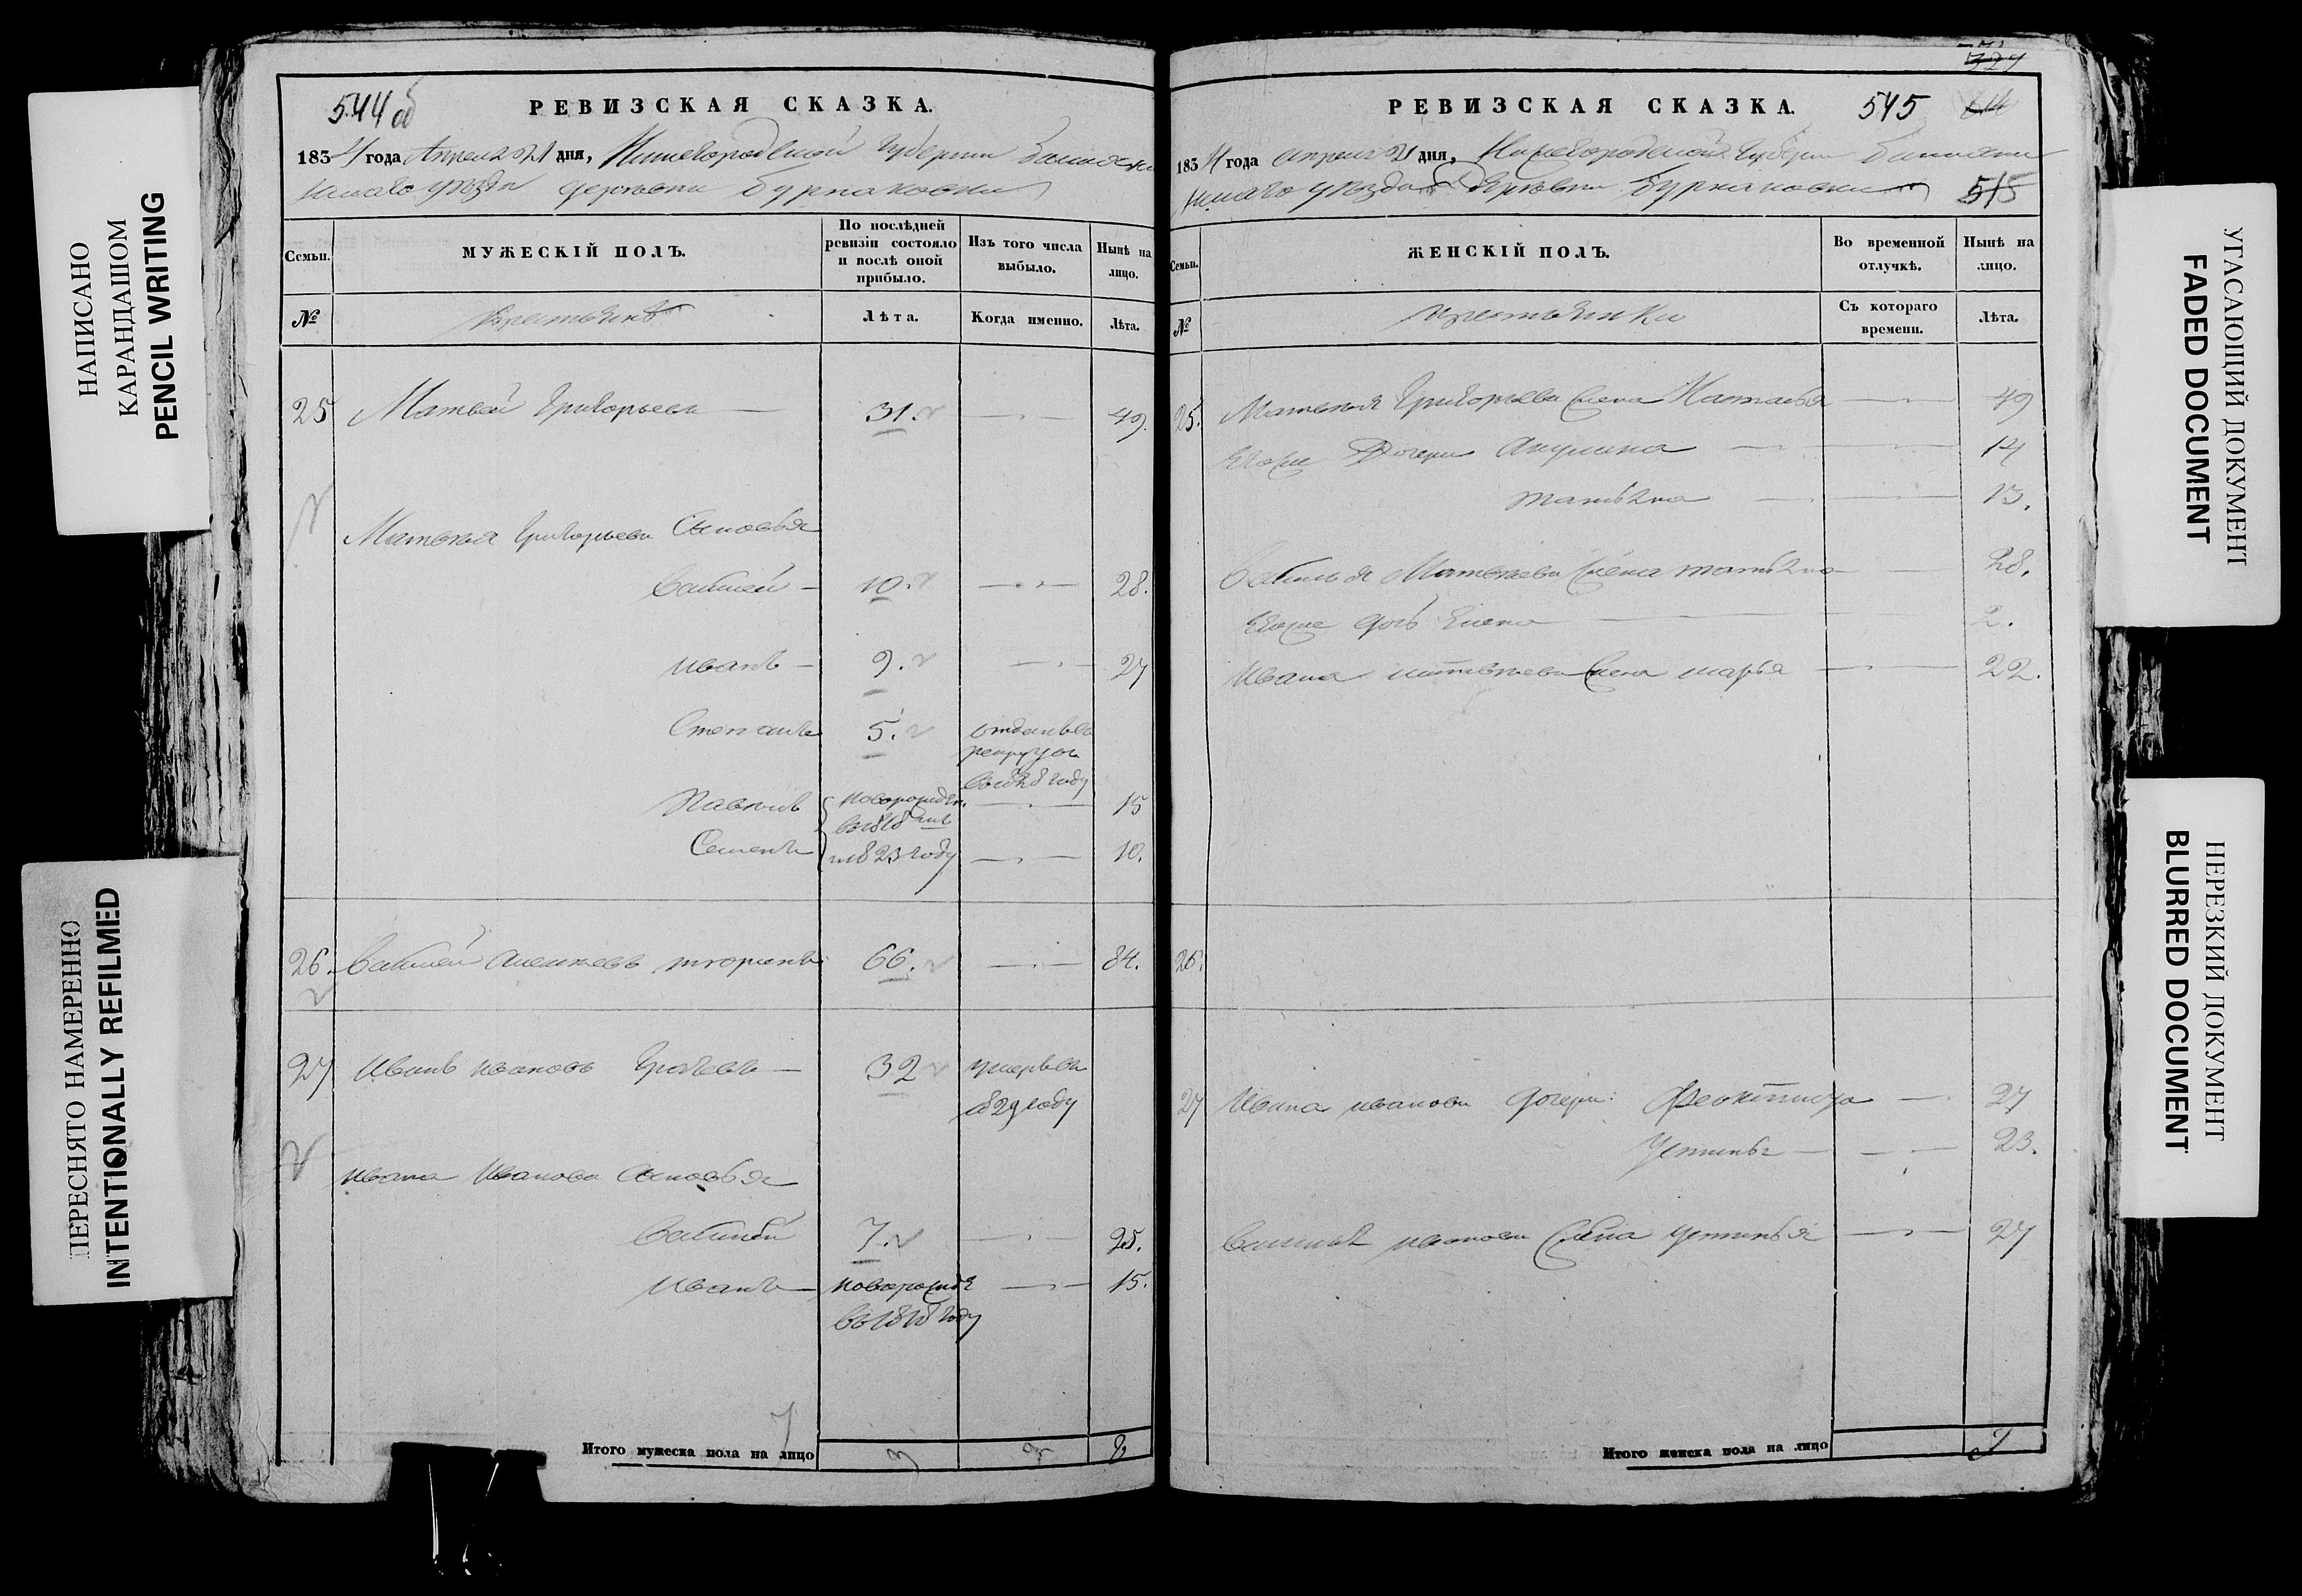 НАПИСАНО
КАРАНДАШОМ
PENCIL WRITING
ПЕРЕСНЯТО НАМЕРЕННО
INTENTIONALLY REFILMED
544 об
РЕВИЗСКАЯ СКАЗКА.
1834 года Апреля 21 дня, Нижегородской Губернии
уезда деревни Бурнаковки
Семьи.
МУЖЕСКІЙ ПОЛЪ.
По послѣдней ревизіи состояло и послѣ оной прибыло.
Изъ того числа выбыло.
Нынѣ на лицо.
№
Лѣта.
Когда именно.
Лѣта.
25 Матвей Григорьевъ — 31. — 49.
Матвея Григорьева Сыновья
Василей — 10. — 28.
Иванъ — 9. — 27
Степанъ 5. отданъ въ
рекруты
въ 1828 году
Павелъ новорожден. — 15
въ 1818
Семенъ 1823 году — 10.
26. Василей Алексеевъ 66. — 84.
27 Иванъ Ивановъ — 32 умеръ въ
1829 году
Ивана Иванова Сыновья
Василей 7. — 25.
Иванъ — новорожде — 15.
въ 1818 году
7
Итого мужеска пола на лицо 8
327
РЕВИЗСКАЯ СКАЗКА. 545
1834 года апреля 21 дня, Нижегородской Губернии
уезда деревни Бурнаковки 515
Семьи.
ЖЕНСКІЙ ПОЛЪ.
Во временной отлучкѣ.
Нынѣ на лицо.
№
крестьянки
Съ котораго времени.
Лѣта.
25. Матвея Григорьева жена Наталья — 49
Егоже Дочери Акулина — 14
татьяна — 13.
Василья Матвеева жена татьяна — 28.
Егоже дочь Елена — 2.
Ивана матвеева жена марья — 22.
26.
27 Ивана иванова дочери: Феоктиста — 27
Устинья — 23.
Василья иванова жена устинья — 27
Итого женска пола на лицо
УГАСАЮЩИЙ ДОКУМЕНТ
FADED DOCUMENT
НЕРЕЗКИЙ ДОКУМЕНТ
BLURRED DOCUMENT